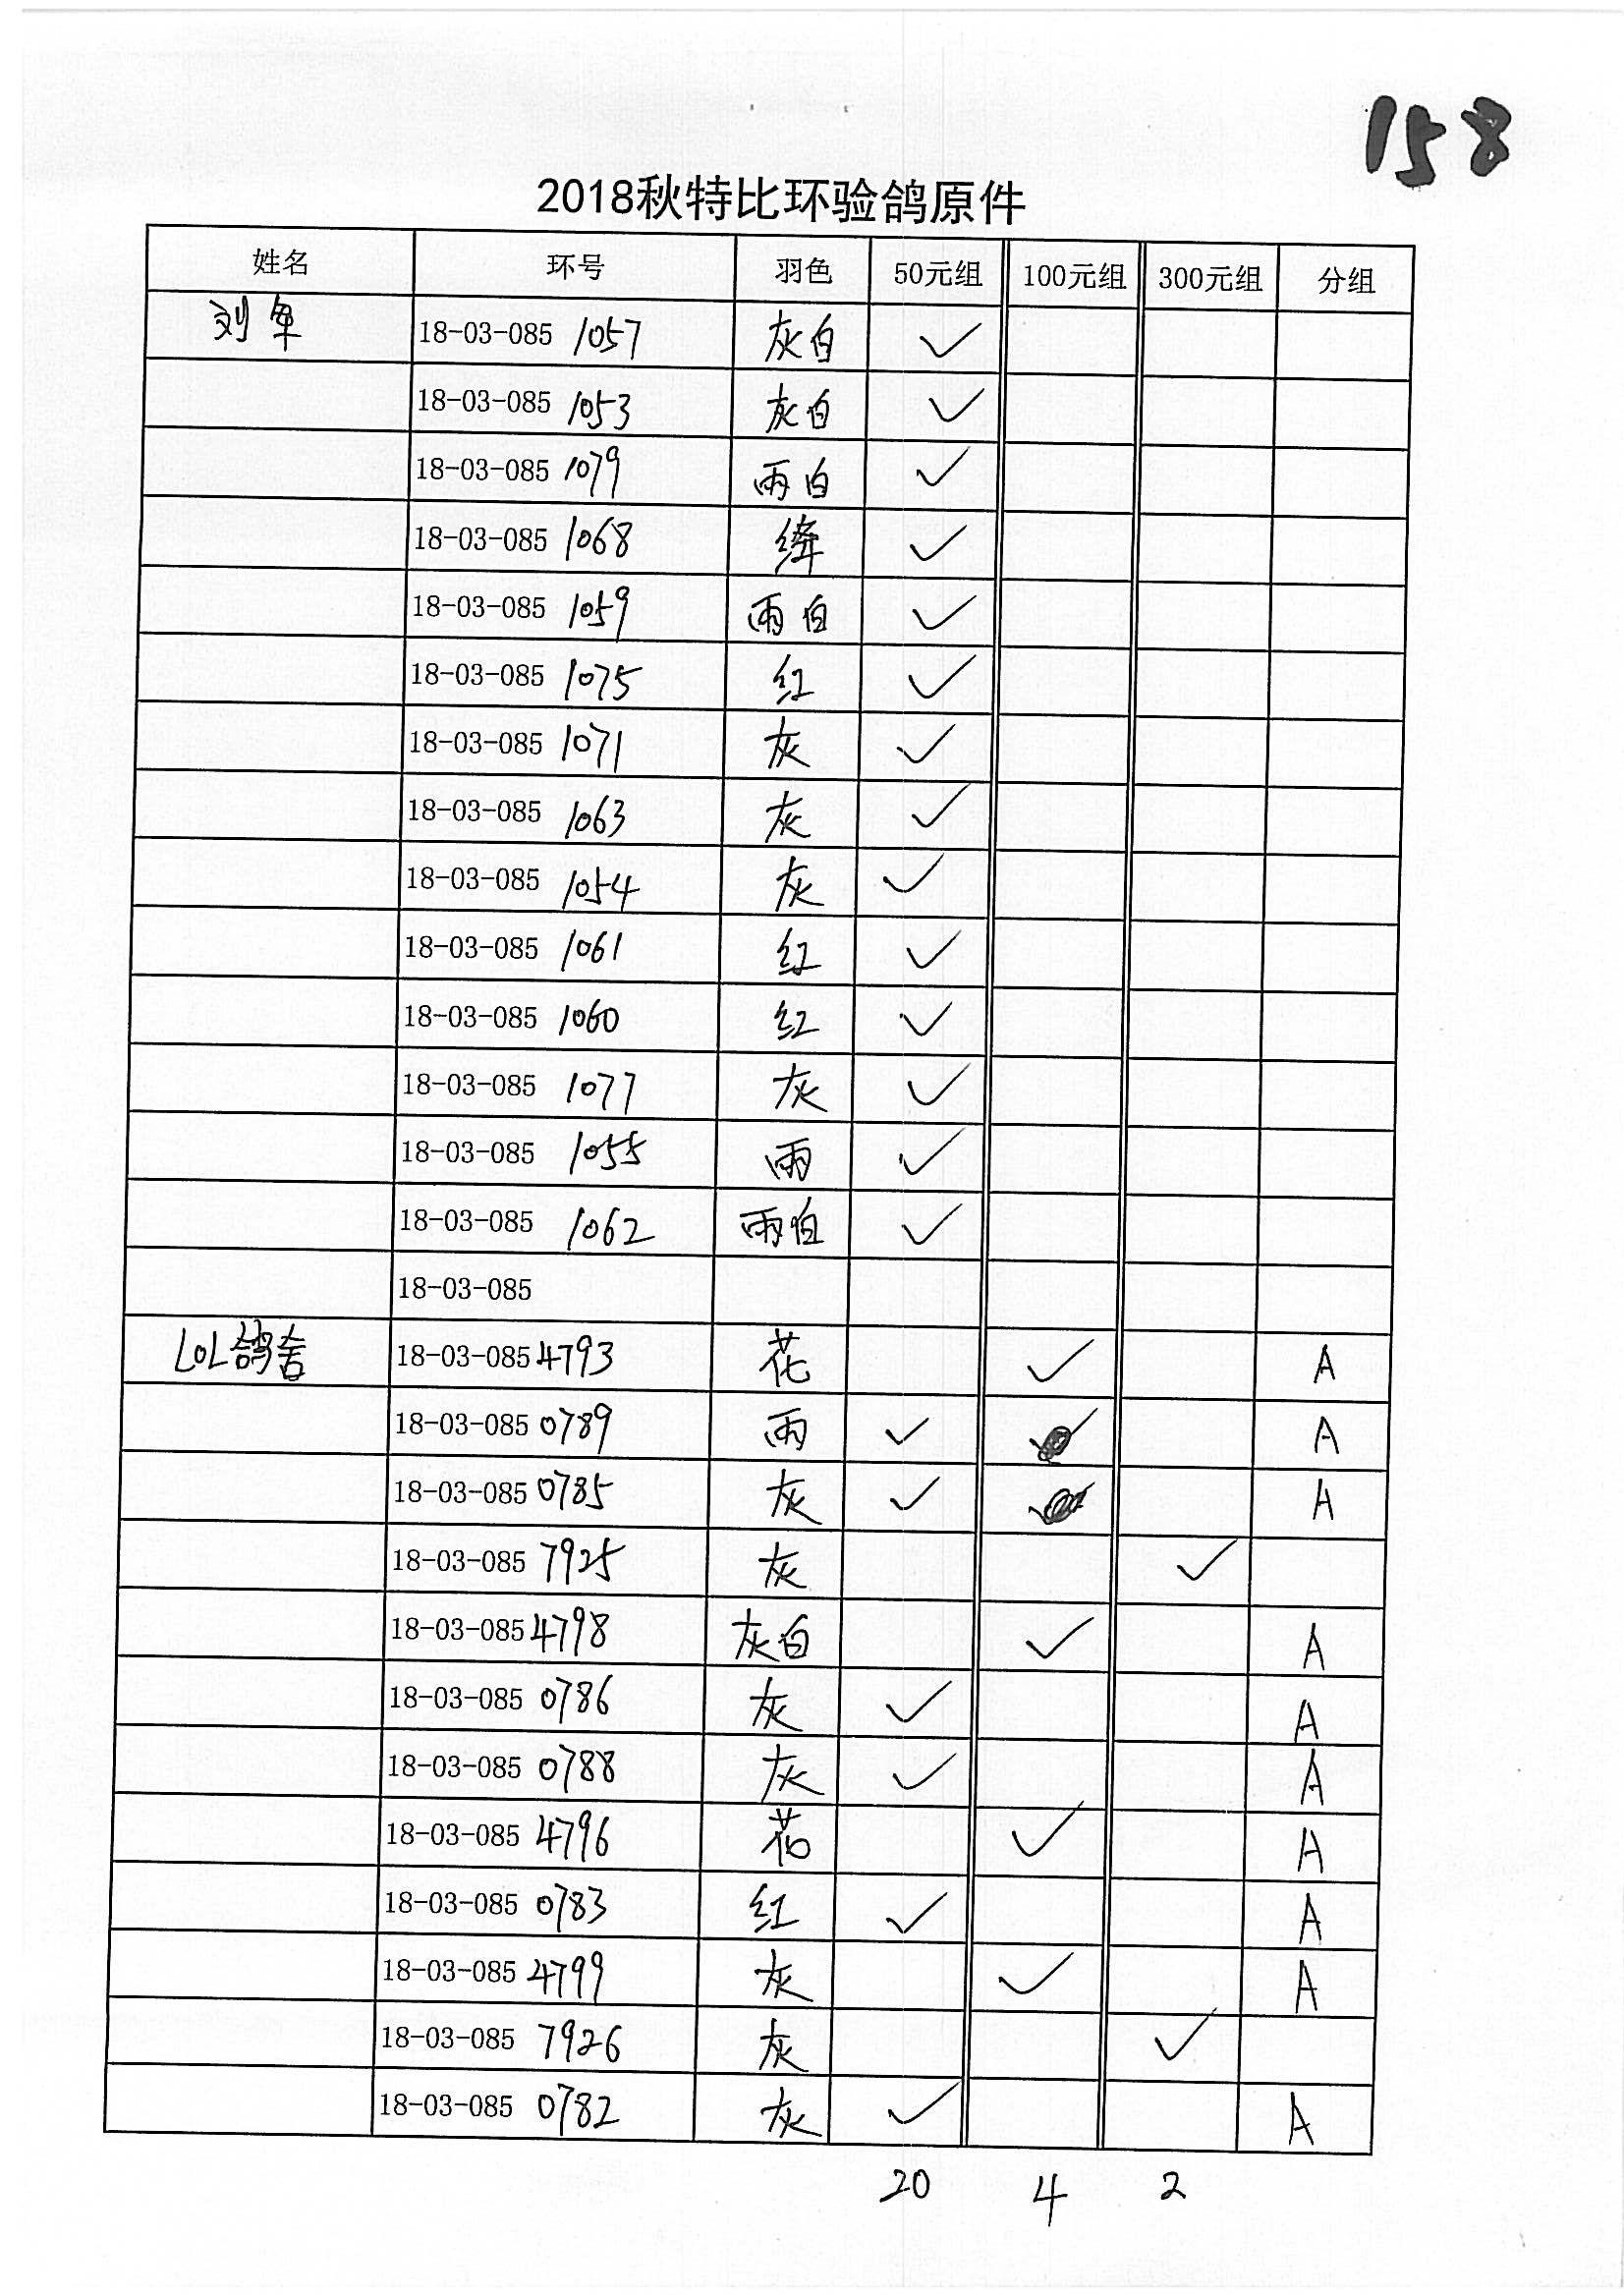 158
2018秋特比环验鸽原件
姓名 环号 羽色 50元组 100元组 300元组 分组
刘军 18-03-085 1057 灰白 ✓
18-03-085 1053 灰白 ✓
18-03-085 1079 雨白 ✓
18-03-085 1068 绛 ✓
18-03-085 1059 雨白 ✓
18-03-085 1075 红 ✓
18-03-085 1071 灰 ✓
18-03-085 1063 灰 ✓
18-03-085 1054 灰 ✓
18-03-085 1061 红 ✓
18-03-085 1060 红 ✓
18-03-085 1077 灰 ✓
18-03-085 1055 雨 ✓
18-03-085 1062 雨白 ✓
18-03-085
LOL鸽舍 18-03-085 4793 花 ✓ A
18-03-085 0789 雨 ✓ A
18-03-085 0785 灰 ✓ A
18-03-085 7925 灰 ✓
18-03-085 4798 灰白 ✓ A
18-03-085 0786 灰 ✓ A
18-03-085 0788 灰 ✓ A
18-03-085 4796 花 ✓ A
18-03-085 0783 红 ✓ A
18-03-085 4799 灰 ✓ A
18-03-085 7926 灰 ✓
18-03-085 0782 灰 ✓ A
20 4 2